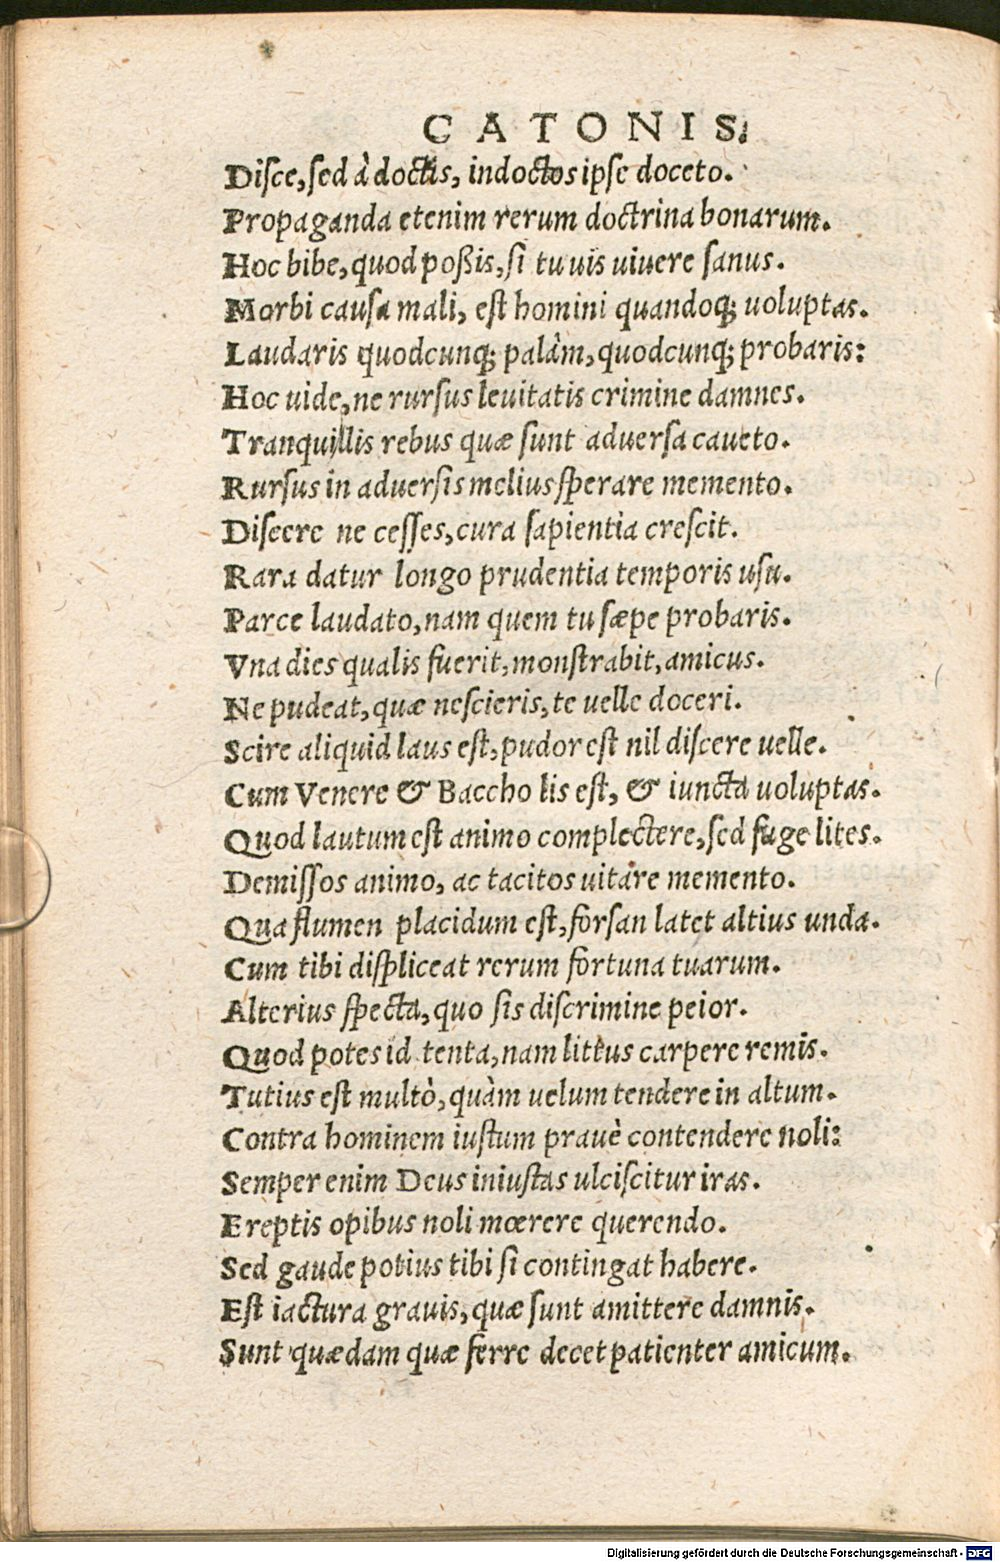 CATONIS.
Diſce, ſed à doctis, indoctos ipſe doceto.
Propaganda etenim rerum doctrina bonarum.
Hoc bibe, quod poßis, ſi tu uis uiuere ſanus.
Morbi cauſa mali, eſt homini quandoq; uoluptas.
Laudaris quodcunq; palàm, quodcunq; probaris:
Hoc uide, ne rurſus leuitatis crimine damnes.
Tranquillis rebus quæ ſunt aduerſa caueto.
Rurſus in aduerſis melius ſperare memento.
Diſcere ne ceſſes, cura ſapientia creſcit.
Rara datur longo prudentia temporis uſu.
Parce laudato, nam quem tu ſæpe probaris.
Vna dies qualis fuerit, monſtrabit, amicus.
Ne pudeat, quæ neſcieris, te uelle doceri.
Scire aliquid laus eſt, pudor eſt nil diſcere uelle.
Cum Venere & Baccho lis eſt, & iuncta uoluptas.
Quod lautum eſt animo complectere, ſed fuge lites.
Demiſſos animo, ac tacitos uitare memento.
Qua flumen placidum eſt, forſan latet altius unda.
Cum tibi diſpliceat rerum fortuna tuarum.
Alterius ſpecta, quo ſis diſcrimine peior.
Quod potes id tenta, nam littus carpere remis.
Tutius eſt multò, quàm uelum tendere in altum.
Contra hominem iuſtum prauè contendere noli:
Semper enim Deus iniuſtas ulciſcitur iras.
Ereptis opibus noli mœrere querendo.
Sed gaude potius tibi ſi contingat habere.
Eſt iactura grauis, quæ ſunt amittere damnis.
Sunt quædam quæ ferre decet patienter amicum.
Digitalisierung gefördert durch die Deutsche Forschungsgemeinschaft - DFG